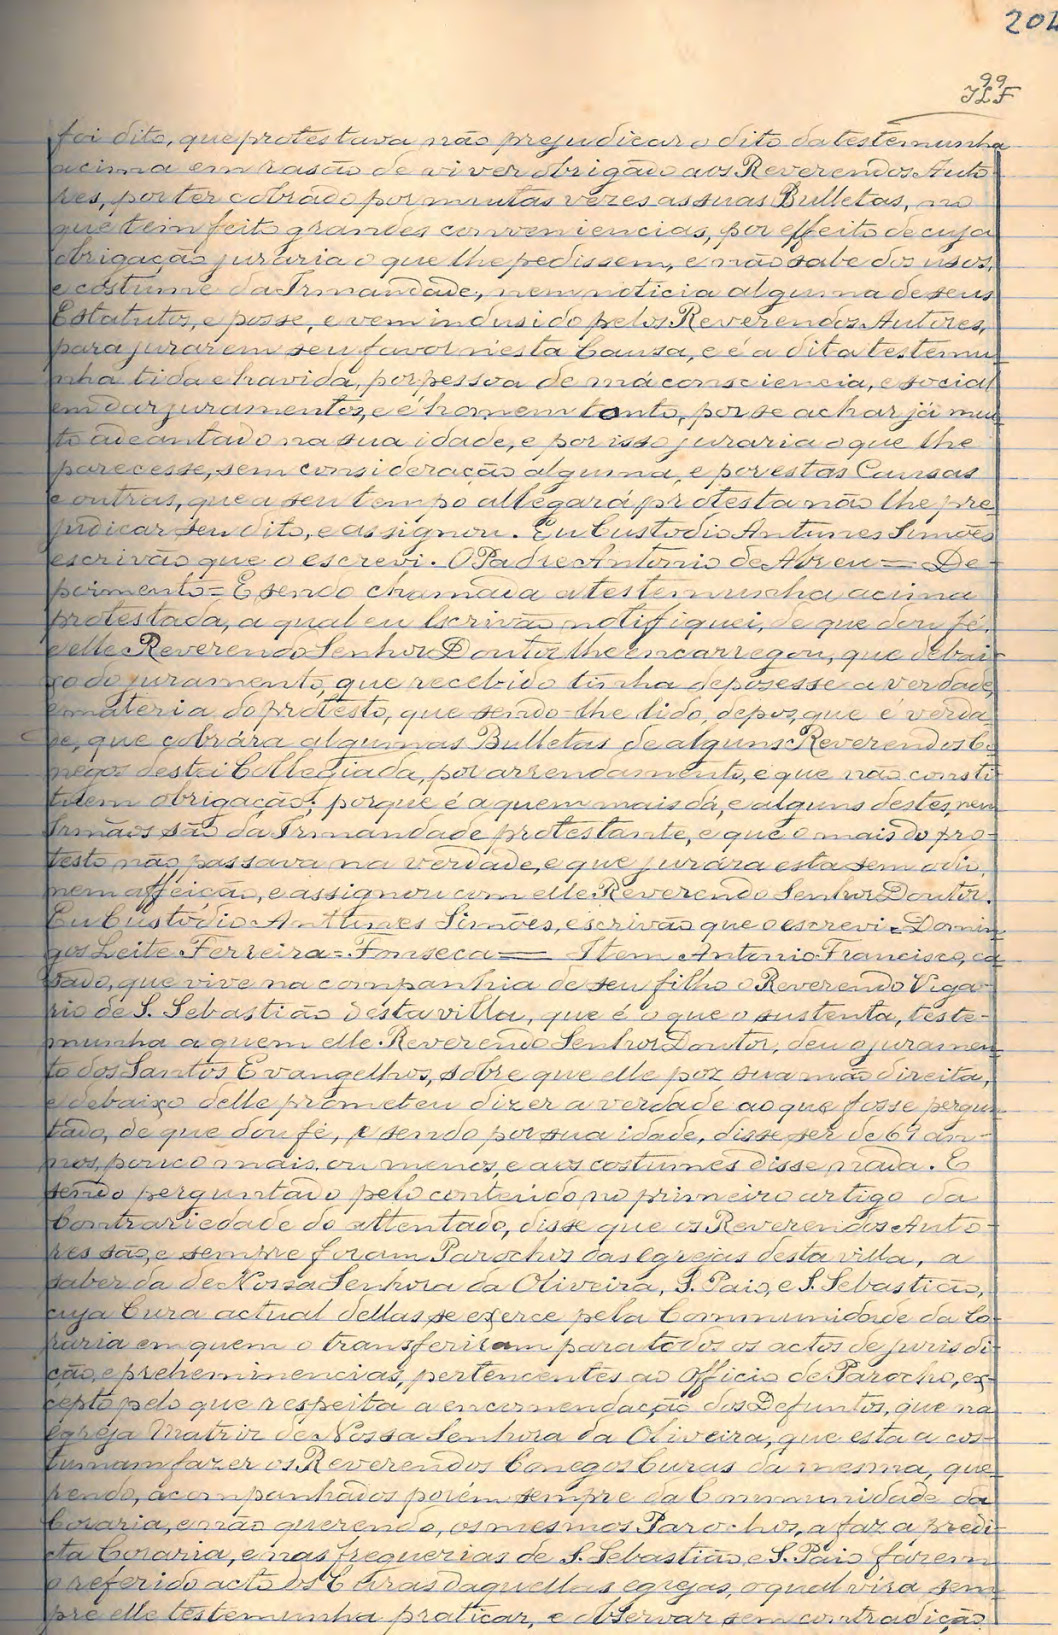 202
99
JLF
foi dito, que protestava não prejudicar o dito da testemunha
acima em rasão de viver obrigado aos Reverendos Auto-
res, por ter cobrado por muitas veres as suas Bulletas, no
que tem feito grandes conveniencias, por effeito de cuja
obrigação juraria o que lhe pedissem, e não sabe dos usos,
e costume da Irmandade, nem noticia alguma de seus
Estatutos, e posse, e vem indusido pelos Reverendos Autores,
para jurar em seu favor n'esta Causa, e é a dita testemu-
nha tida e havida, por pessoa de má consciencia, e social
em dar juramentos, e é homem tonto, por se achar já mui-
to adeantado na sua idade, e por isso juraria o que lhe
parecesse, sem consideração alguma, e por estas Causas
e outras, que a seu tempo allegará protesta não lhe pre-
judicar seu dito, e assignou. Eu Custodio Antunes Simões
escrivão que o escrevi. O Padre Antonio de Abreu = De-
poimento = E sendo chamada a testemunha acima
protestada, a qual eu Escrivão notifiquei, de que dou fé,
e elle Reverendo Senhor Doutor lhe encarregou, que debai-
xo do juramento, que recebido tinha deposesse a verdade,
e materia do protesto, que sendo-lhe lido, depoz, que é verda-
de, que cobrára algumas Bulletas de alguns Reverendos Co-
negos desta Collegiada, por arrendamento, e que não consti-
tuem obrigação; porque é a quem mais dá, e alguns destes, nem
Irmãos são da Irmandade protestante, e que o mais do pro-
testo não passava na verdade, e que jurára esta sem odio,
nem affeição, e assignou com elle Reverendo Senhor Doutor.
Eu Custodio Anttunes Simões, escrivão que o escrevi = Domin-
gos Leite Ferreira = Fonseca = Item Antonio Francisco, ca-
sado, que vive na companhia de seu filho o Reverendo Viga-
rio de S. Sebastião desta villa, que é o que o sustenta, teste-
munha a quem elle Reverendo Senhor Doutor, deu o juramen-
to dos Santos Evangelhos, sobre que elle poz sua mão direita,
e debaixo delle prometeu dizer a verdade ao que fosse pergun-
tado, de que dou fé, e sendo por sua idade, disse ser de 69 an-
nos, pouco mais, ou menos, e aos costumes disse nada. E
sendo perguntado pelo conteúdo no primeiro artigo da
Contrariedade do attentado, disse que os Reverendos Auto-
res são, e sempre foram Parochos das egrejas desta villa, a
saber da de Nossa Senhora da Oliveira, S. Paio, e S. Sebastião,
cuja Cura actual dellas se exerce pela Communidade da Co-
raria em quem o transferiram para todos os actos de jurisdi-
ção, e preheminencias, pertencentes ao Officio de Parocho, ex-
cepto pelo que respeita a encomendação dos Defuntos, que na
egreja Matriz de Nossa Senhora da Oliveira, que esta a cos-
tumam fazer os Reverendos Conegos Curas da mesma, que-
rendo, acompanhados porém sempre da Communidade da
Coraria, e não querendo, os mesmos Parochos, a faz a predi-
cta Coraria, e nas freguerias de S. Sebastião, e S. Paio fazem
o referido acto os Curas daquellas egrejas, o qual vira sem-
pre elle testemunha praticar, e observar sem contradição